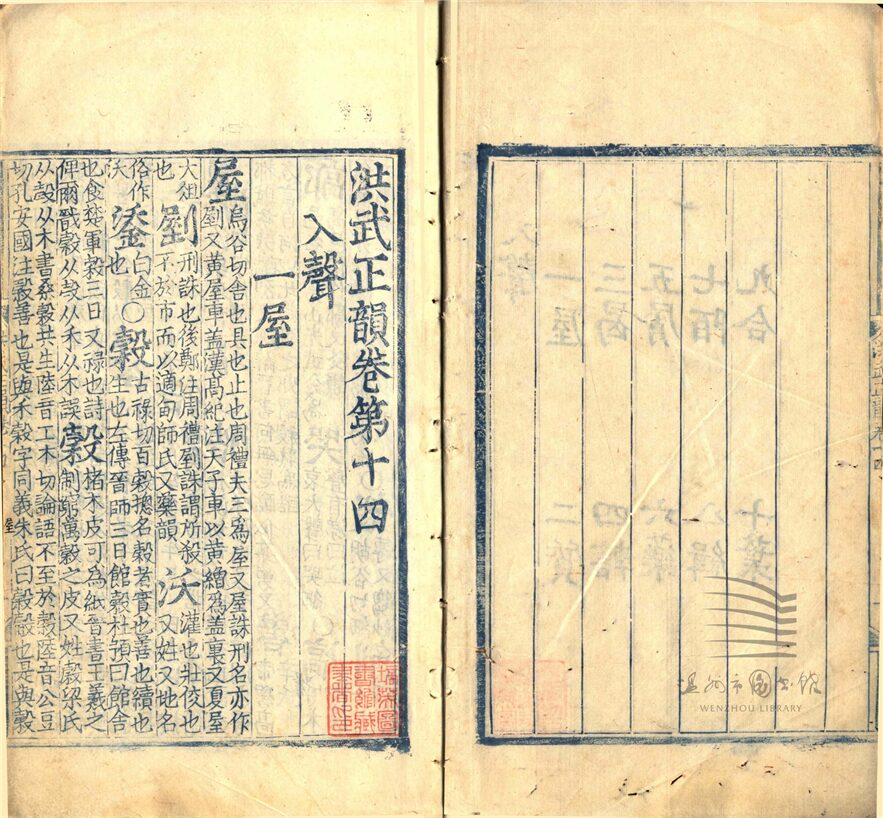 洪武正韻卷第十四
入聲
一屋
屋烏谷切舍也具也止也周禮夫三為屋又屋誅刑名亦作
劉又黃屋車蓋漢髙紀注天子車以黃繒為蓋裏又夏屋
大徂也劉刑誅也後鄭注周禮劉誅謂所殺不於市而以適甸師氏又藥韻沃灌也壯佼也又姓又地名
俗作沃鋈白金也〇穀古祿切百穀捴名穀者實也善也續也生也左傳晉師三日館穀杜預曰館舍
也食楚軍穀三日又祿也詩俾爾戩穀从殻从禾从木誤
榖楮木皮可為紙晉書王羲之制蠒萬榖之皮又姓榖梁氏
从殻从木書桑榖共生陸音工木切論語不至於穀陸音公豆
切孔安國注穀善也是與禾穀字同義朱氏曰穀也是與穀
屋
WENZHOU LIBRARY